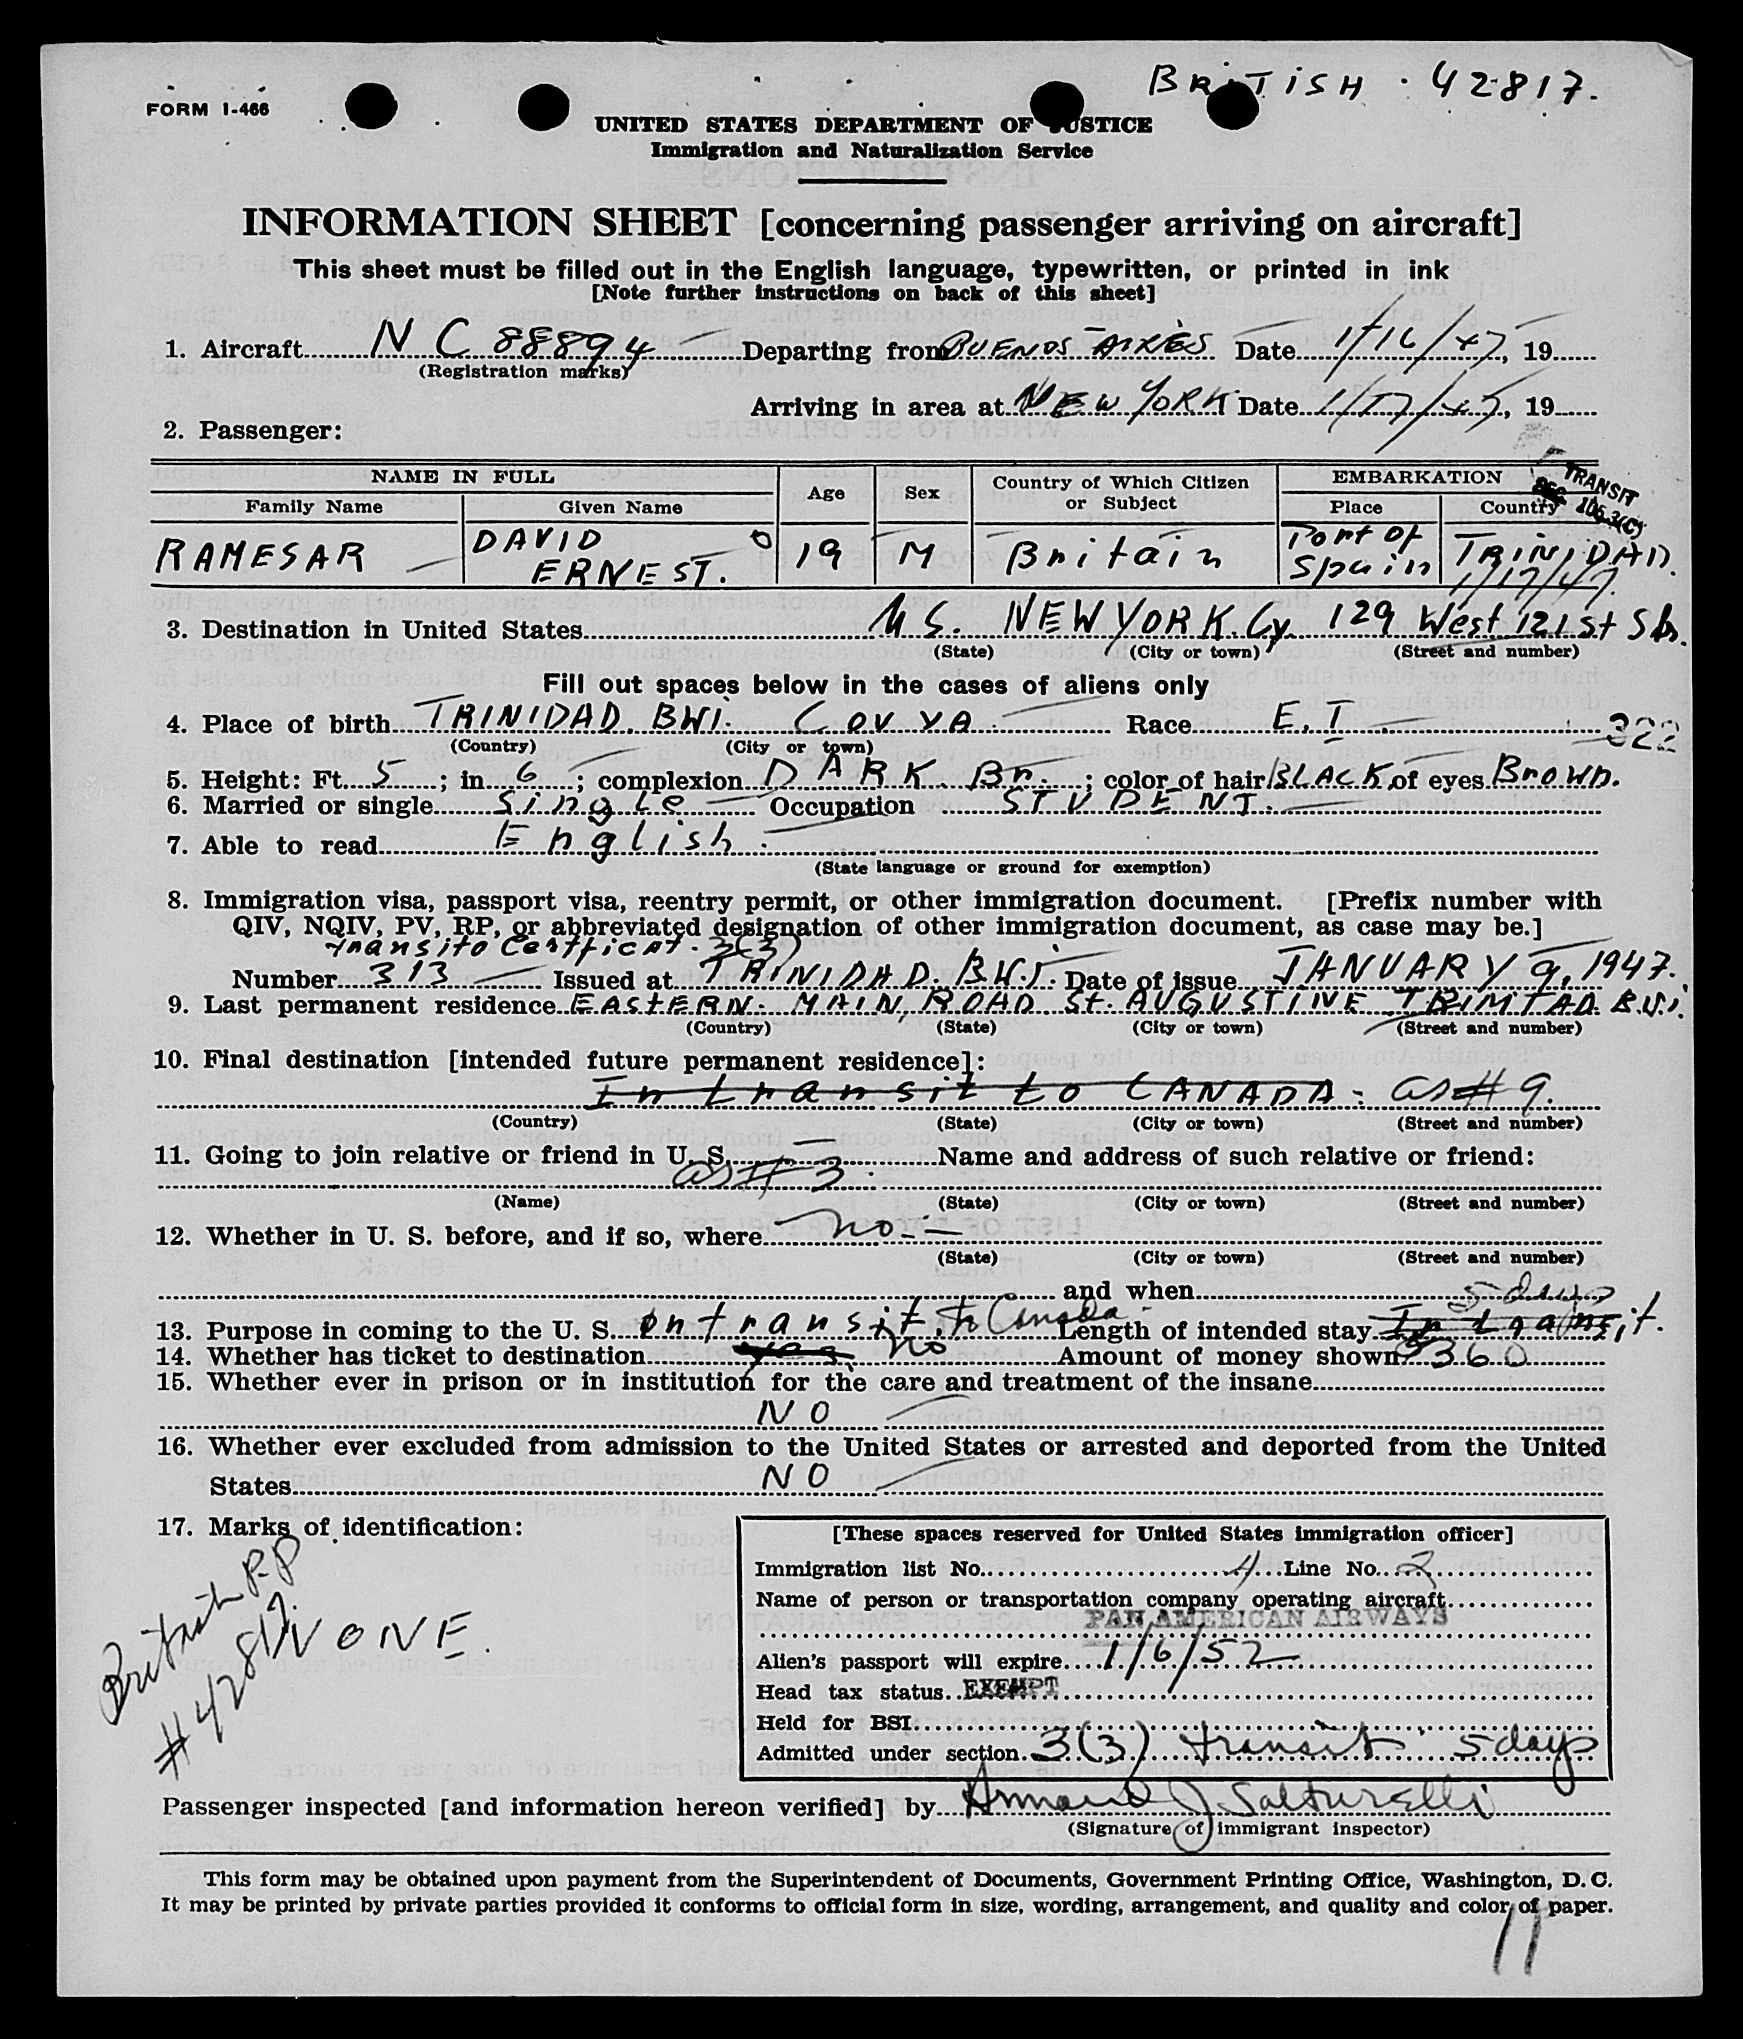 BRITISH . 42817.
FORM I-466
UNITED STATES DEPARTMENT OF JUSTICE
Immigration and Naturalization Service
INFORMATION SHEET [concerning passenger arriving on aircraft]
This sheet must be filled out in the English language, typewritten, or printed in ink
[Note further instructions on back of this sheet]
1. Aircraft NC 88894 Departing from BUENOS AIRES Date 1/16/47, 19
(Registration marks)
Arriving in area at NEW YORK Date 1/17/47, 19
2. Passenger:
NAME IN FULL Age Sex Country of Which Citizen or Subject EMBARKATION
Family Name Given Name Place Country
TRANSIT
SEC 106.3(C)
RAMESAR DAVID ERNEST. 19 M Britain Port of Spain TRINIDAD.
1/17/47.
3. Destination in United States U.S. NEW YORK. Cy. 129 West 121 St
(State) (City or town) (Street and number)
Fill out spaces below in the cases of aliens only
4. Place of birth TRINIDAD. BWI. COUVA. Race E.I. 322
(Country) (City or town)
5. Height: Ft. 5; in. 6; complexion DARK. Br.; color of hair BLACK of eyes Brown.
6. Married or single Single Occupation STUDENT.
7. Able to read English.
(State language or ground for exemption)
8. Immigration visa, passport visa, reentry permit, or other immigration document. [Prefix number with
QIV, NQIV, PV, RP, or abbreviated designation of other immigration document, as case may be.]
transito Certficat. 3(3)
Number 313 Issued at TRINIDAD. B.W.I. Date of issue JANUARY 9, 1947.
9. Last permanent residence EASTERN. MAIN, ROAD St. AUGUSTINE TRINIDAD. B.W.I.
(Country) (State) (City or town) (Street and number)
10. Final destination [intended future permanent residence]:
In transit to CANADA. as # 9.
(Country) (State) (City or town) (Street and number)
11. Going to join relative or friend in U. S. Name and address of such relative or friend:
as # 3.
(Name) (State) (City or town) (Street and number)
12. Whether in U. S. before, and if so, where no.
(State) (City or town) (Street and number)
and when
5 days
13. Purpose in coming to the U. S. in transit. to Canada. Length of intended stay In transit.
14. Whether has ticket to destination yes. No Amount of money shown $360
15. Whether ever in prison or in institution for the care and treatment of the insane
NO
16. Whether ever excluded from admission to the United States or arrested and deported from the United
States NO
17. Marks of identification:
British P.P.
# 42817.
NONE.
[These spaces reserved for United States immigration officer]
Immigration list No. 4 Line No. 2
Name of person or transportation company operating aircraft
PAN AMERICAN AIRWAYS
Alien's passport will expire 1/6/52
Head tax status EXEMPT
Held for BSI
Admitted under section 3(3) transit 5 days
Passenger inspected [and information hereon verified] by Armand J Salturelli
(Signature of immigrant inspector)
This form may be obtained upon payment from the Superintendent of Documents, Government Printing Office, Washington, D. C.
It may be printed by private parties provided it conforms to official form in size, wording, arrangement, and quality and color of paper.
11